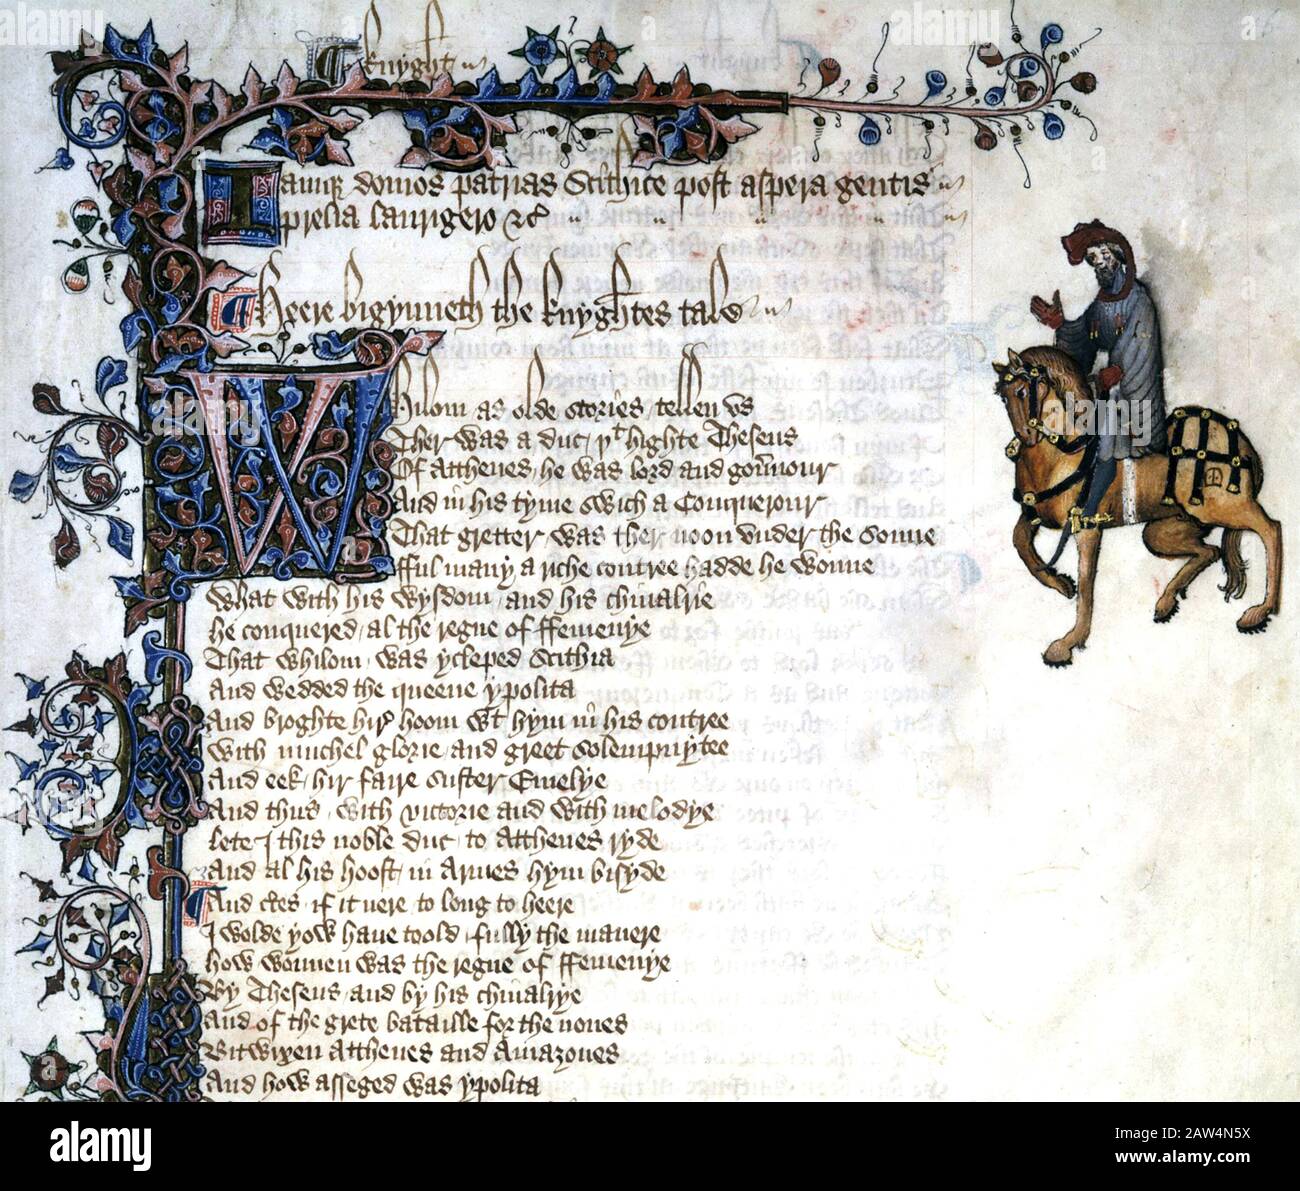 knyght
Iamq domos patrias Scithice post aspera gentis
prelia laurigero &c
Heere bigynneth the knyghtes tale
Whilom as olde stories tellen us
Ther was a duc þt highte Theseus
Of Atthenes he was lord and gouernour
And in his tyme swich a Conquerour
That gretter was ther noon vnder the sonne
fful many a riche contree hadde he wonne
What with his wysdom and his chiualrie
he conquered al the regne of ffemenye
That whilom was ycleped Scithia
And wedded the queene ypolita
And broghte hire hoom wt hym in his contree
With muchel glorie and greet solempnytee
And eek hir faire suster Emelye
And thus with victorie and with melodye
lete I this noble duc to Atthenes ryde
And al his hoost in Armes hym bisyde
And certes if it nere to long to heere
I wolde yow haue toold fully the manere
how wonnen was the regne of ffemenye
By Theseus and by his chiualrye
And of the grete bataille for the nones
Bitwixen Atthenes and Amazones
And how asseged was ypolita
alamy
Image ID: 2AW4N5X
www.alamy.com